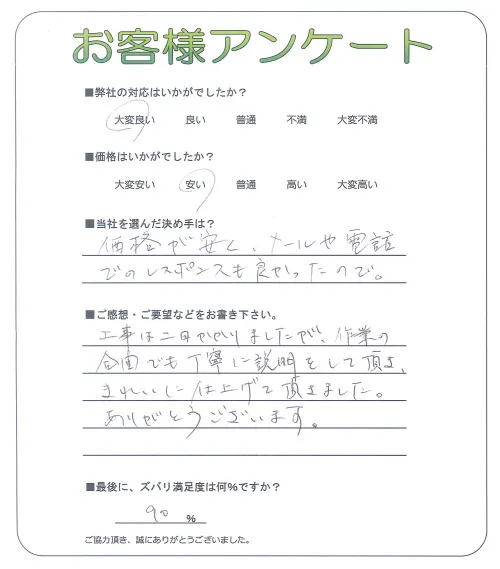 お客様アンケート
■弊社の対応はいかがでしたか？
大変良い 良い 普通 不満 大変不満
■価格はいかがでしたか？
大変安い 安い 普通 高い 大変高い
■当社を選んだ決め手は？
価格が安く、メールや電話
でのレスポンスも良かったので。
■ご感想・ご要望などをお書き下さい。
工事は二日かかりましたが、作業の
合間でも丁寧に説明をして頂き、
きれいに仕上げて頂きました。
ありがとうございます。
■最後に、ズバリ満足度は何％ですか？
90 %
ご協力頂き、誠にありがとうございました。